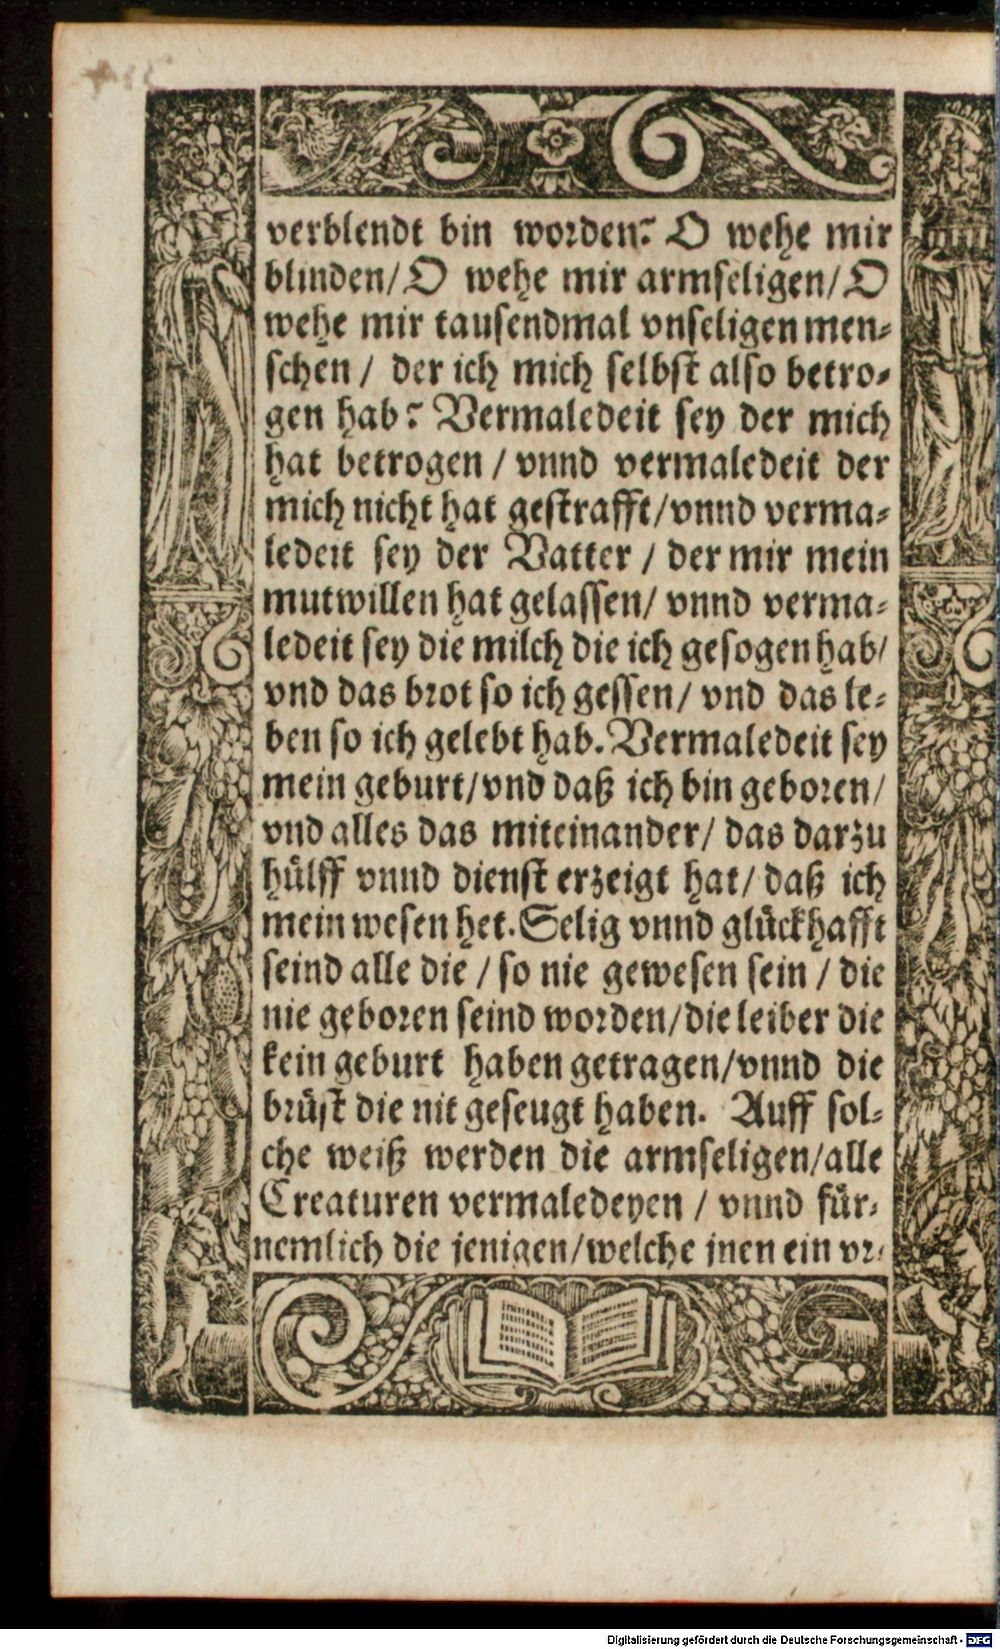 verblendt bin worden? O wehe mir
blinden/ O wehe mir armseligen/ O
wehe mir tausendmal vnseligen men-
schen / der ich mich selbst also betro-
gen hab? Vermaledeit sey der mich
hat betrogen / vnnd vermaledeit der
mich nicht hat gestrafft/ vnnd verma-
ledeit sey der Vatter / der mir mein
mutwillen hat gelassen/ vnnd verma-
ledeit sey die milch die ich gesogen hab/
vnd das brot so ich gessen/ vnd das le-
ben so ich gelebt hab. Vermaledeit sey
mein geburt/ vnd daß ich bin geboren/
vnd alles das miteinander/ das darzu
huͤlff vnnd dienst erzeigt hat/ daß ich
mein wesen het. Selig vnnd gluͤckhafft
seind alle die / so nie gewesen sein / die
nie geboren seind worden/ die leiber die
kein geburt haben getragen/ vnnd die
bruͤst die nit geseugt haben. Auff sol-
che weiß werden die armseligen/ alle
Creaturen vermaledeyen / vnnd fuͤr-
nemlich die jenigen/ welche jnen ein vr-
Digitalisierung gefördert durch die Deutsche Forschungsgemeinschaft - DFG